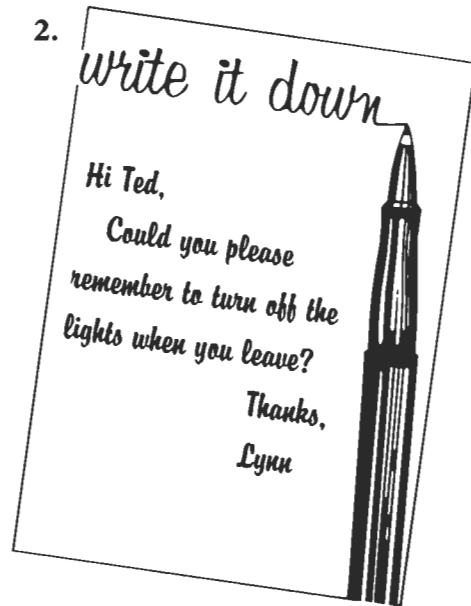 2.
write it down
Hi Ted,
Could you please
remember to turn off the
lights when you leave?
Thanks,
Lynn